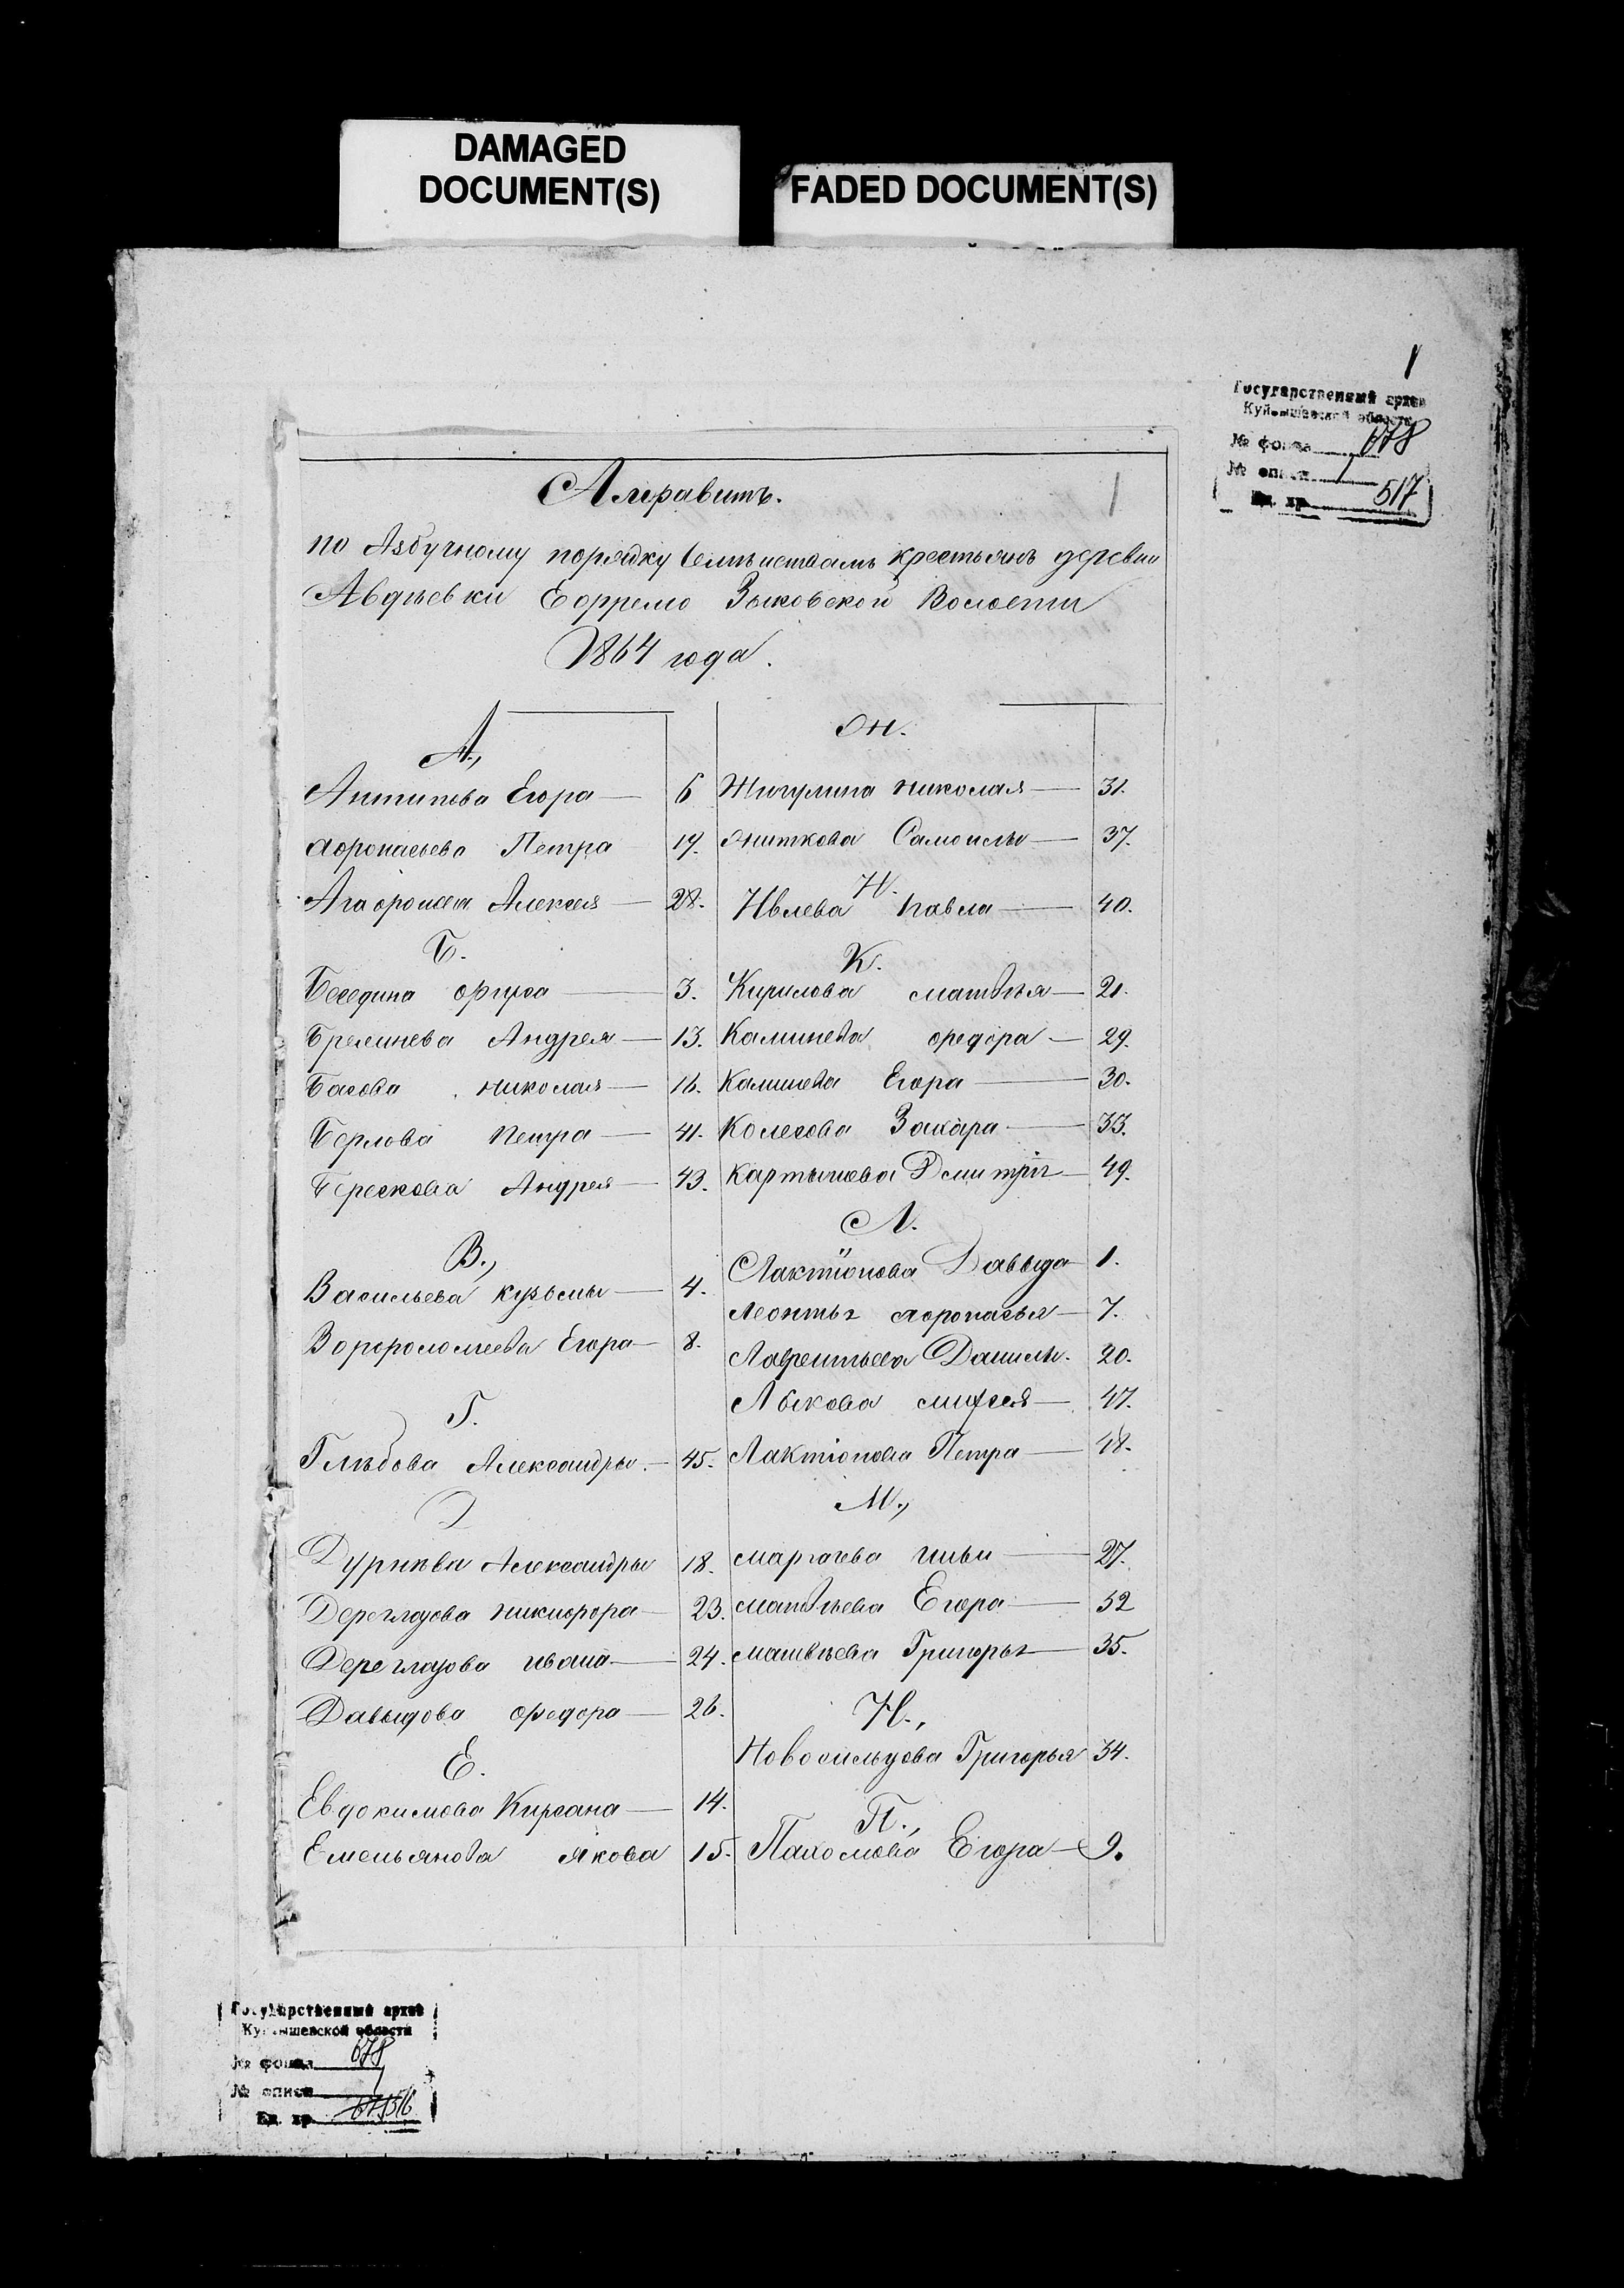 DAMAGED
DOCUMENT(S)
FADED DOCUMENT(S)
1
Государственный архив
Куйбышевской области
№ фонда 678
№ описи 1
Ед. хр. 517
Алфавитъ.
1
по Азбучному порядку Семѣйствамъ крестьянъ деревни
Авдѣевки Ефремо Зыковской Волости
1864 года.
А.,
Антипова Егора — 6
Афонасьева Петра 19.
Агафонова Алексея — 28.
Б.
Беседина Фирса — 3.
Бремнева Андрея — 13.
Басова Николая — 16.
Берлова Петра — 41.
Берескова Андрея — 43.
В.,
Васильева Кузьмы — 4.
Ворфоломеева Егора — 8.
Г.
Глѣбова Александры — 45.
Д
Дурнева Александры 18.
Дереглазова Никифора — 23.
Дереглазова Ивана — 24.
Давыдова Федора — 26.
Е.
Евдокимова Кирсана — 14.
Емельянова Якова 15.
Ж.
Жигулина Николая — 31.
Житкова Самойлы — 37.
И.
Ивлева Павла — 40.
К.
Кирилова Матвѣя — 21.
Калинева Федора — 29.
Калинева Егора — 30.
Колесова Захара — 33.
Картышова Дмитрія — 49.
Л.
Лактіонова Давыда 1.
Леонтья Афонасья — 7.
Лаврентьева Данилы. 20.
Лыкова Михея — 47.
Лактіонова Петра — 48.
М.,
Маргачева Ильи — 27.
Матвѣева Егора — 32
Матвѣева Григорья — 35.
Н.,
Новосильцова Григорья 34.
П.,
Пахомова Егора — 9.
Государственный архив
Куйбышевской области
№ фонда 678
№ описи 1
Ед. хр. 516